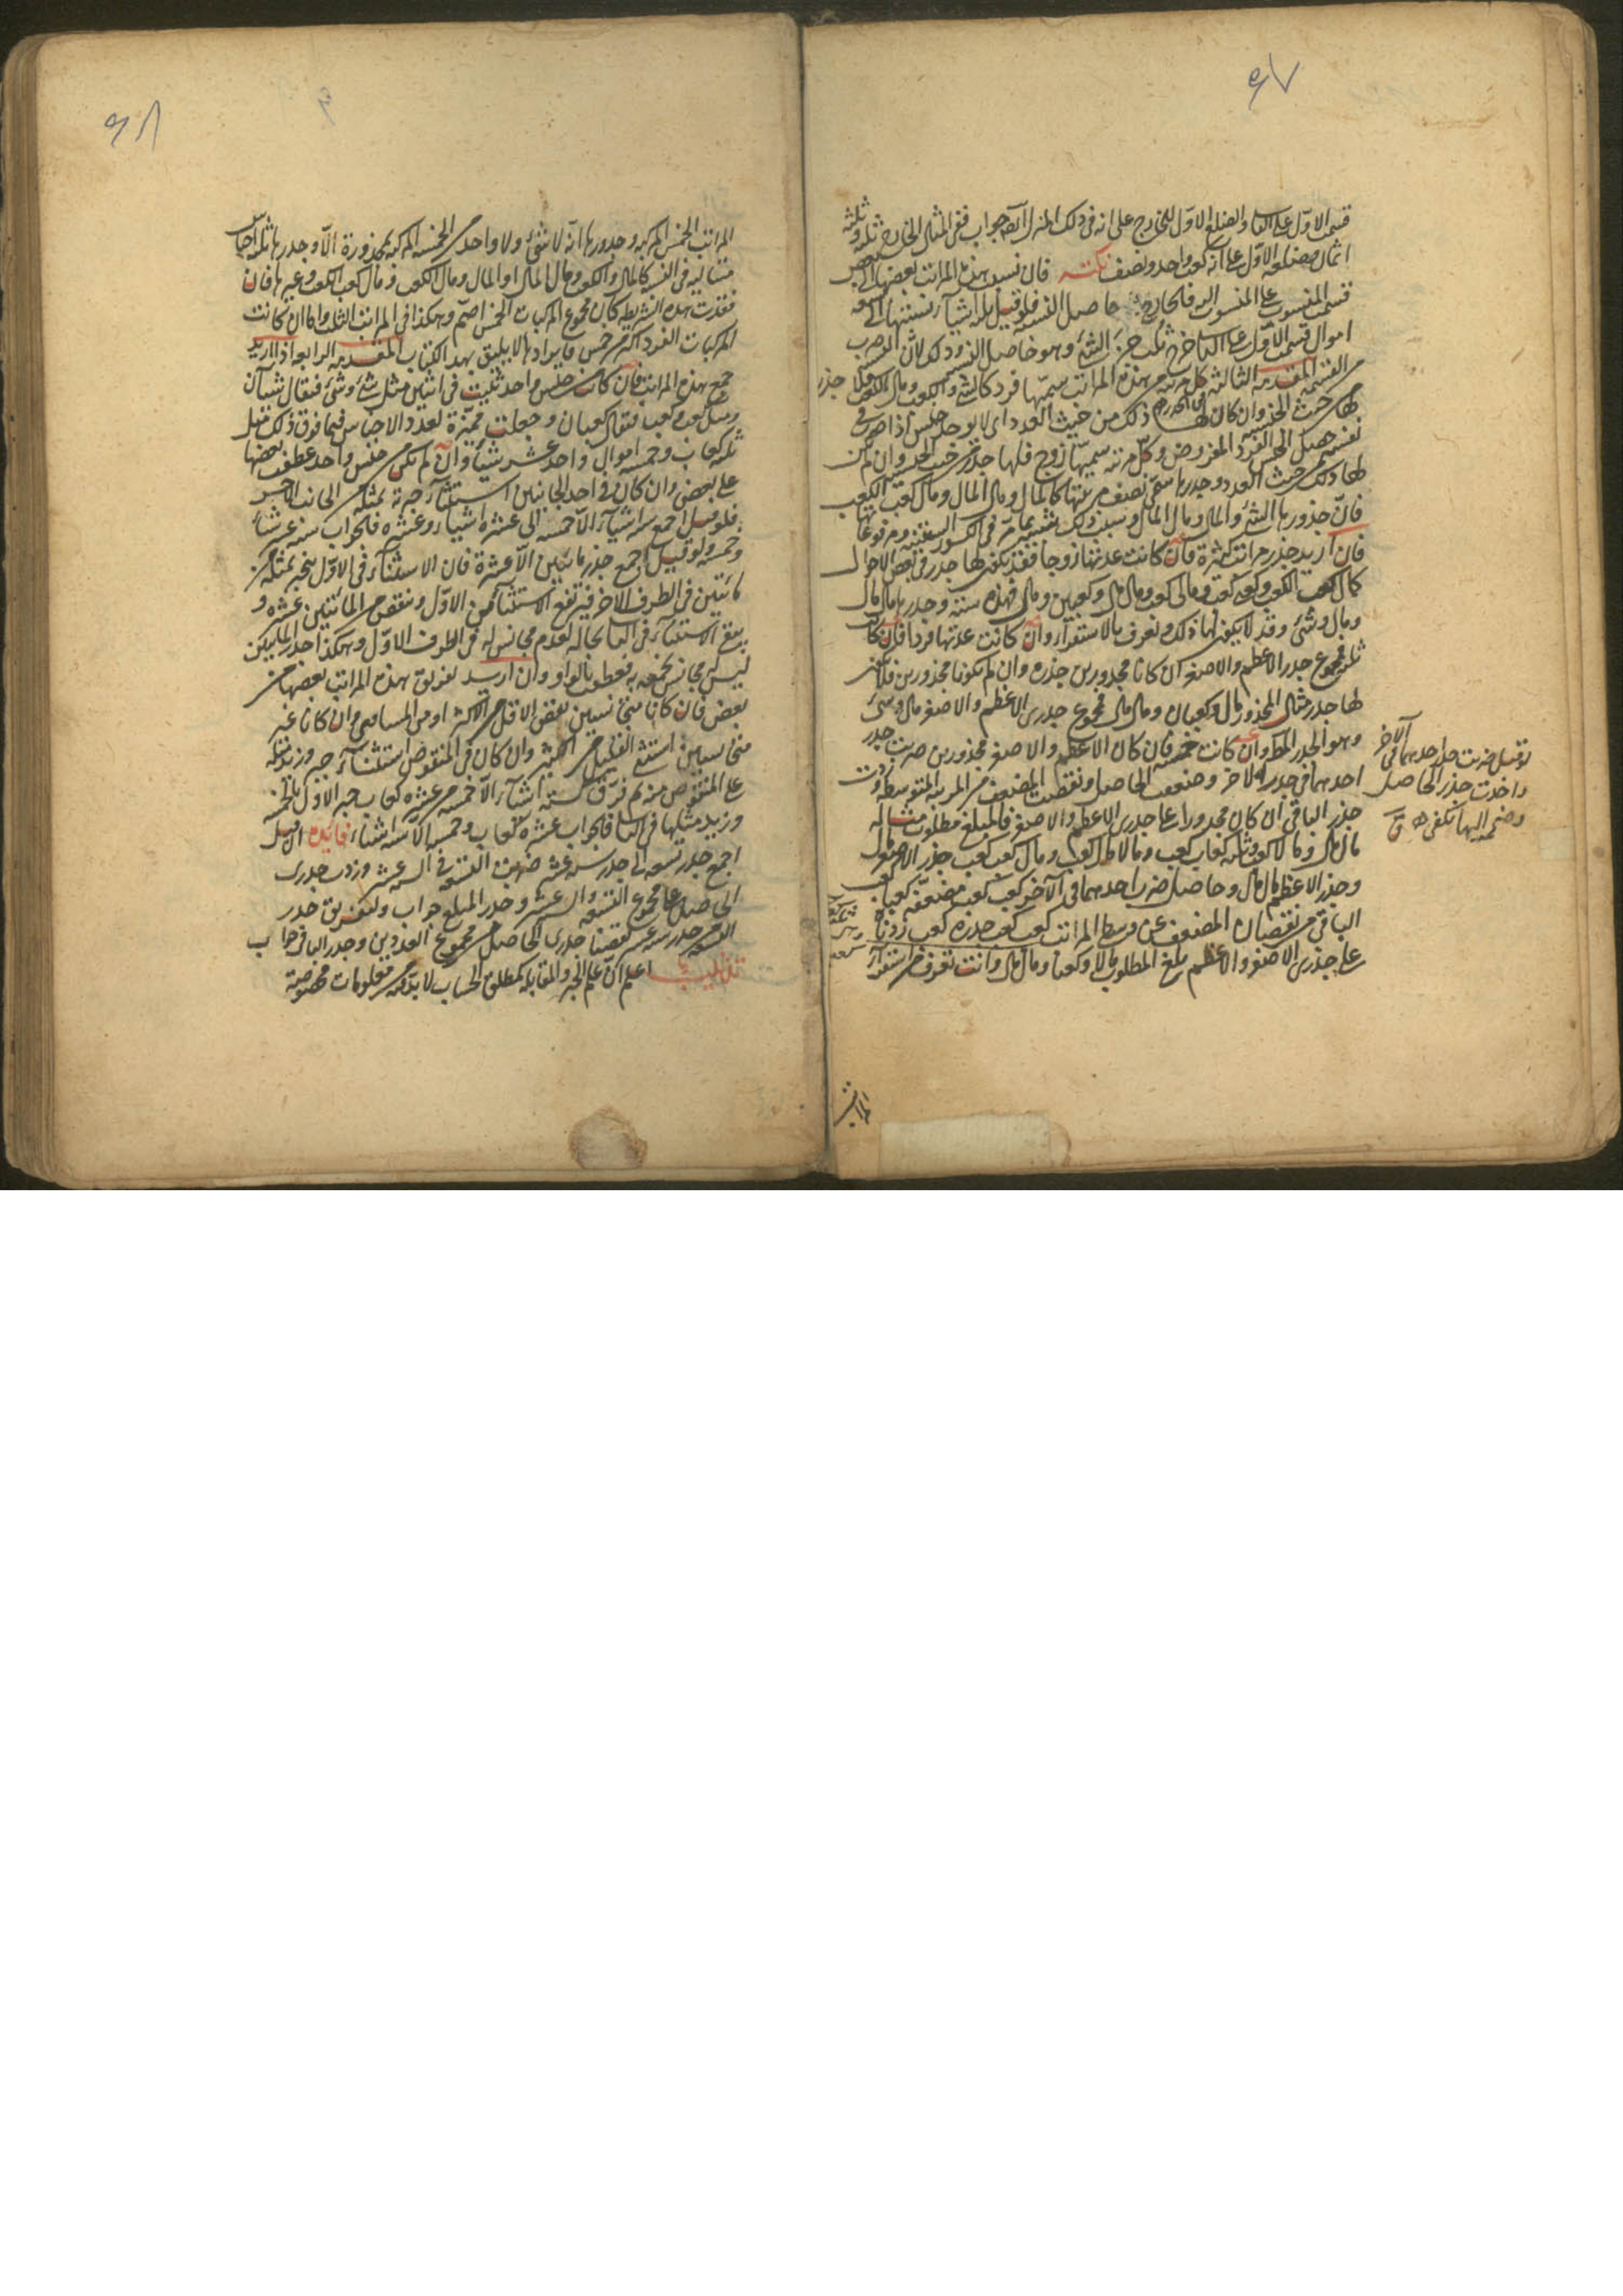 ٤٧
قسمت الاوّل على الثانى والضلع الاوّل للخارج على انه فى ذلك المنزل آية جواب ففى المثال الخارج ثلثة وثلثة
اثمان مضلعه الاوّل على انه كعب واحد ونصف نكتـه فان نسبت هذه المراتب بعضها الى بعض
قسمت المنسوب على المنسوب اليه فالخارج حاصل النسبة فلو قيل ثلثة اشياء نسبتها الى تسعة
اموال قسمت الاوّل على الثانى خرج ثلث جزء الشئ وهو حاصل النسبة وذلك لانّ النسبة ضرب
من القسمة المقدمة الثالثة كل مرتبة من هذه المراتب سميّها فرد كالشئ والكعب ومال الكعب فلا جذر
لها من حيث الجنس وان كان لها ذلك من حيث العدد اى لا يوجد جنس اذا ضرب فى
نفسه حصل الجنس الفرد المفروض وكلّ مرتبة سميّها زوج فلها جذر من حيث الجنس وان لم يكن
لها ذلك من حيث العدد وجذرها سمّى نصف مرتبتها كالمال ومال المال ومال كعب الكعب
فانّ جذورها الشئ والمال ومال المال وسبب ذلك شبيه بما مرّ فى الكسور الستينية ومرفوعاتها
فان اريد جذر مراتب كثيرة فان كانت عدتها زوجا فقد يكون لها جذر فى بعض الاحوال
كمال كعب الكعب وكعب كعب ومالى كعب ومال مال وكعبين ومال فهذه ستة وجذرها مال مال
ومال وشئ وقد لا يكون لها ذلك وتعرف بالاستقراء وان كانت عدتها فردا فان كانت
ثلثة فمجموع جذر الاعظم والاصغر ان كانا مجذورين جذره وان لم يكونا مجذورين فلا يكن
لها جذر مثال المجذور مال وكعبان ومال مال فمجموع جذرى الاعظم والاصغر مال وشئ
وهو الجذر المط وان كانت خمسة فان كان الاعظم والاصغر مجذورين ضربت جذر
احدهما فى جذر الآخر وضعفت الحاصل ونقصت المضعف من المرتبة المتوسطة وزدت
جذر الباقى ان كان مجذورا على جذرى الاعظم والاصغر فالمبلغ مطلوب مثاله
مال مال ومالا كعب وثلثة كعاب كعب ومالا مال كعب ومال كعب كعب جذر الاصغر مال
وجذر الاعظم مال مال وحاصل ضرب احدهما فى الآخر كعب كعب مضعفه كعبا كعب
الباقى من نقصان المضعف عن وسط المراتب كعب كعب جذره كعب زدناه
على جذرى الاصغر والاعظم بلغ المطلوب مالا وكعبا ومال مال وانت تعرف من استقراء
لو قيل ضربت جذر احدهما فى الآخر
واخذت جذر الحاصل
وضممه اليها تكفى
٤٨
المراتب الخمس المركبة وجذورها انّه لا شئ ولا واحد من الخمسة المركبة بمجذورة الّا وجذرها ثلثة اجناس
متتالية فى النسبة كالمال والكعب ومال المال او المال ومال الكعب ومال كعب الكعب وغيرها فان
فقدت هذه الشريطة كان مجموع المركبات الخمس اصمّ وهكذا فى المراتب الثلث وامّا ان كانت
المركبات الفرد اكثر من خمس فايرادها لا يليق بهذا الكتاب المقدمة الرابعة اذا اريد
جمع هذه المراتب فان كانت من جنس واحد ثنيت فى اثنين مثل شئ وشئ فتقال شيآن
ومثل كعب وكعب فتقال كعبان وجعلت مميّزة لعدد الاجناس فيما فوق ذلك مثل
ثلثة كعاب وخمسة اموال واحد عشر شيئا وان لم تكن من جنس واحد عطفت بعضها
على بعض وان كان فى احد الجانبين استثناء جبرته بمثله من الجانب الآخر
فلو قيل اجمع ستة اشياء الّا خمسة الى عشرة اشياء وعشرة فالجواب ستة عشر شيئا
وخمسة ولو قيل اجمع جذر مائتين الّا عشرة فان الاستثناء فى الاوّل ينجبر بمثله من
مائتين فى الطرف الآخر فيرتفع الاستثناء من الاوّل وينقص من المائتين عشرة و
يبقى الاستثناء فى الثانى بحاله لعدم مجانس له فى الطرف الاوّل وهكذا جذر المائتين
ليس مجانس نجمعه به فعطف بالواو وان اريد تفريق هذه المراتب بعضها من
بعض فان كانا متجانسين نقص الاقل من الاكثر او من المساوى وان كانا غير
متجانسين استثنى القليل من الكثير وان كان فى المنقوص استثناء جبر وزيد مثله
على المنقوص منه ثم فرّق كستة اشياء الّا خمسة من عشرة كعاب جبر الاوّل بالخمسة
وزيد مثلها فى الثانى فالجواب عشرة كعاب وخمسة الّا ستة اشياء فائدة ان قيل
اجمع جذر تسعة الى جذر ستة عشر ضربت التسعة فى الستة عشر وزدت جذرى
الحاصل على مجموع التسعة والستة عشر وجذر المبلغ جواب ولتفريق جذر
التسعة من جذر ستة عشر نقصنا جذرى الحاصل من مجموع العددين وجذر الباقى جواب
تذنيب اعلم انّ علم الجبر والمقابلة كمطلق الحساب لا بدّ فيه من معلومات مخصوصة